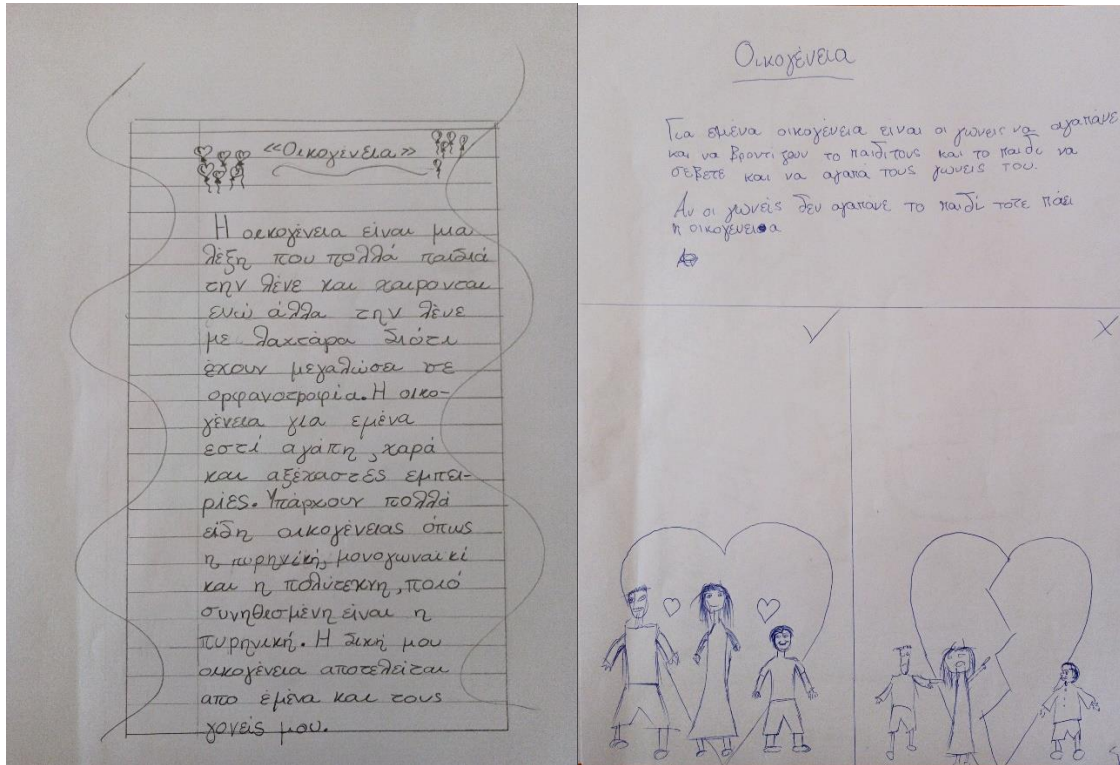 «Οικογένεια»
Η οικογένεια είναι μια
λέξη που πολλά παιδιά
την λένε και χαίρονται
ενώ άλλα την λένε
με λαχτάρα διότι
έχουν μεγαλώσει σε
ορφανοτροφία. Η οικο-
γένεια για εμένα
εστί αγάπη, χαρά
και αξέχαστες εμπει-
ρίες. Υπάρχουν πολλά
είδη οικογένειας όπως
η πυρηνική, μονογωναικί
και η πολύτεκνη, πολύ
συνηθισμένη είναι η
πυρηνική. Η δική μου
οικογένεια αποτελείται
απο έμένα και τους
γονείς μου.
Οικογένεια
Για εμένα οικογένεια ειναι οι γωνείς να αγαπάνε
και να βροντιζουν το παιδίτους και το παιδί να
σέβετε και να αγαπά τους γωνείς του.
Αν οι γωνείς δεν αγαπάνε το παιδί τοτε πάει
η οικογένεια